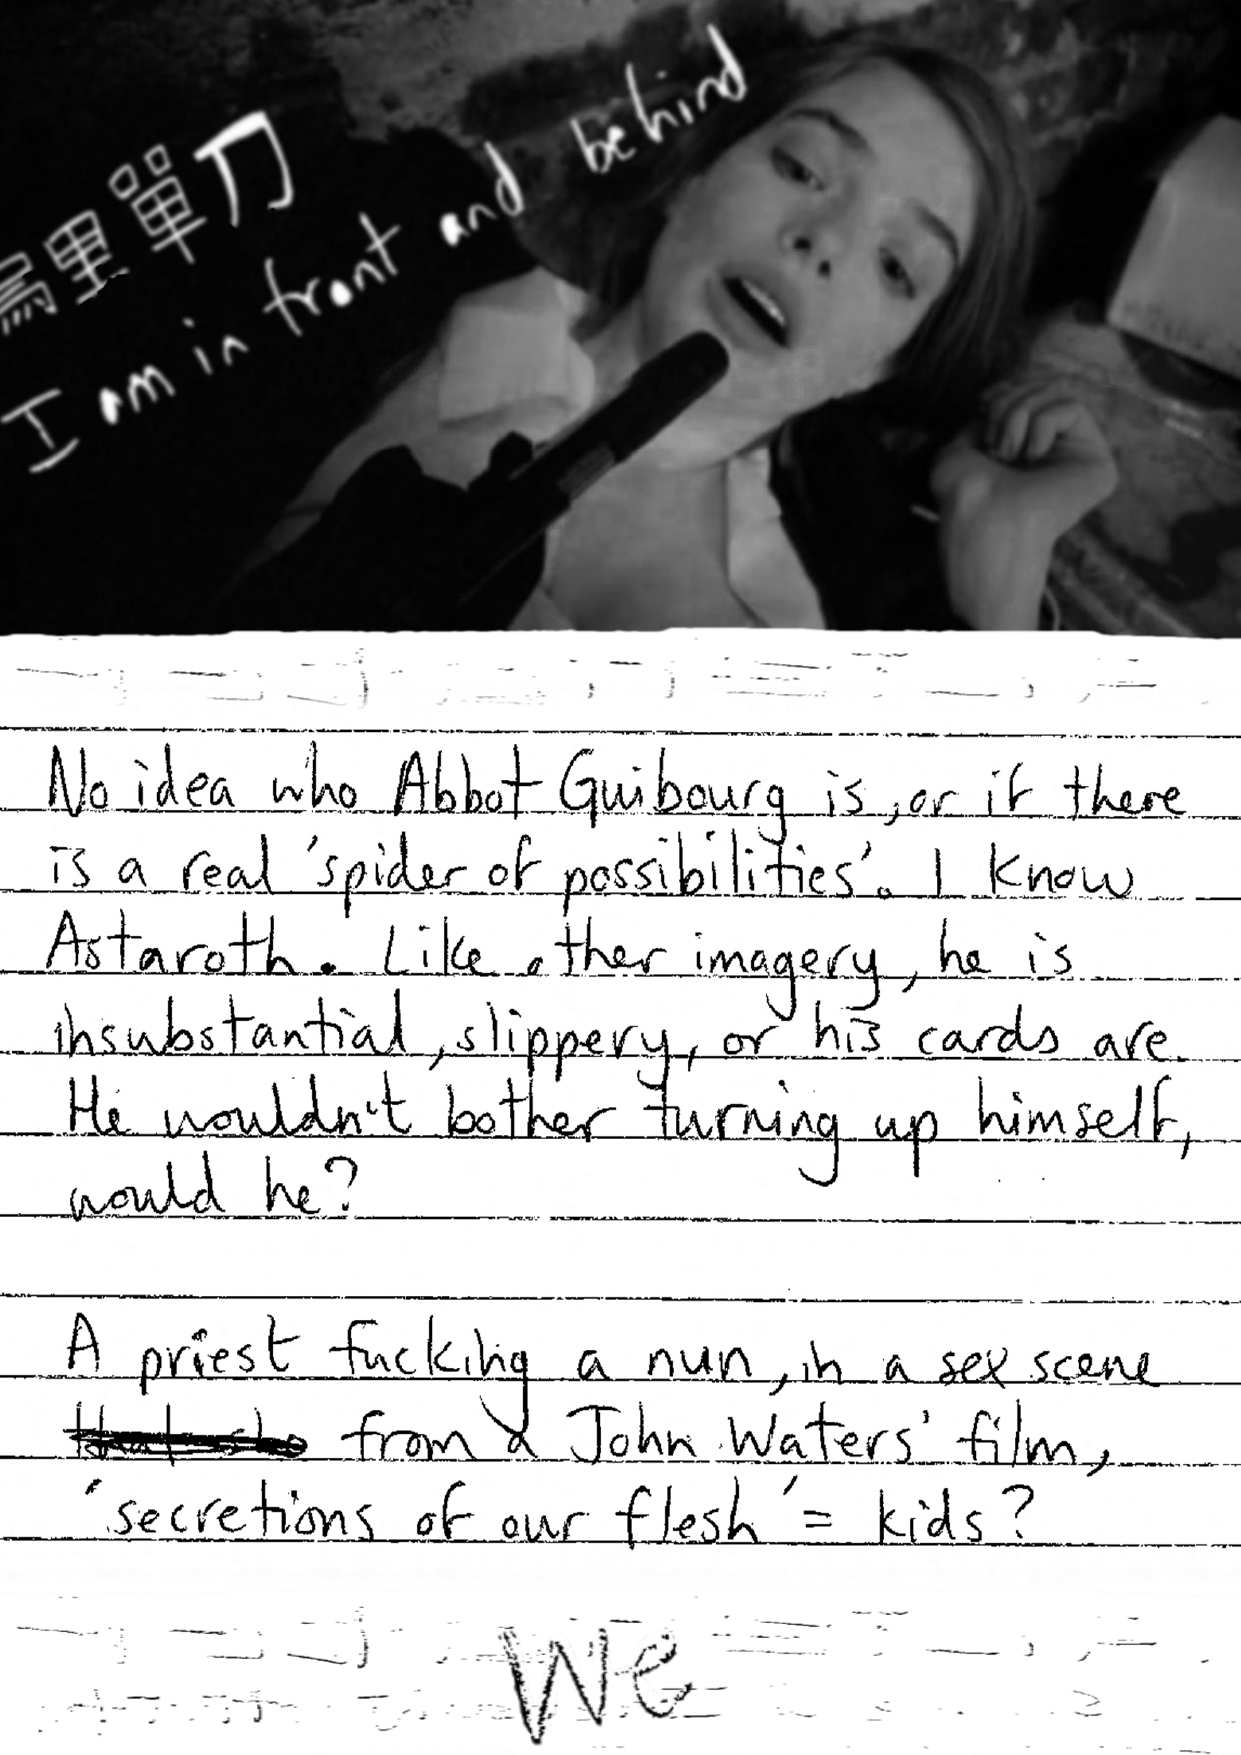 馬里單刀
I am in front and behind
No idea who Abbot Guibourg is, or if there
is a real 'spider of possibilities'. I know
Astaroth. Like other imagery, he is
insubstantial, slippery, or his cards are.
He wouldn't bother turning up himself,
would he?
A priest fucking a nun, in a sex scene
from a John Waters' film,
'secretions of our flesh' = kids?
We